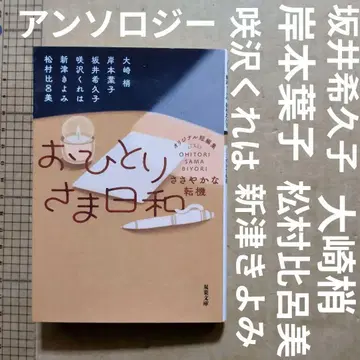 アンソロジー
坂井希久子
大崎梢
岸本葉子
松村比呂美
咲沢くれは
新津きよみ
大崎 梢
岸本葉子
坂井希久子
咲沢くれは
新津きよみ
松村比呂美
オリジナル短編集
OHITORI
SAMA
BIYORI
おひとり
さま日和
ささやかな
転機
双葉文庫